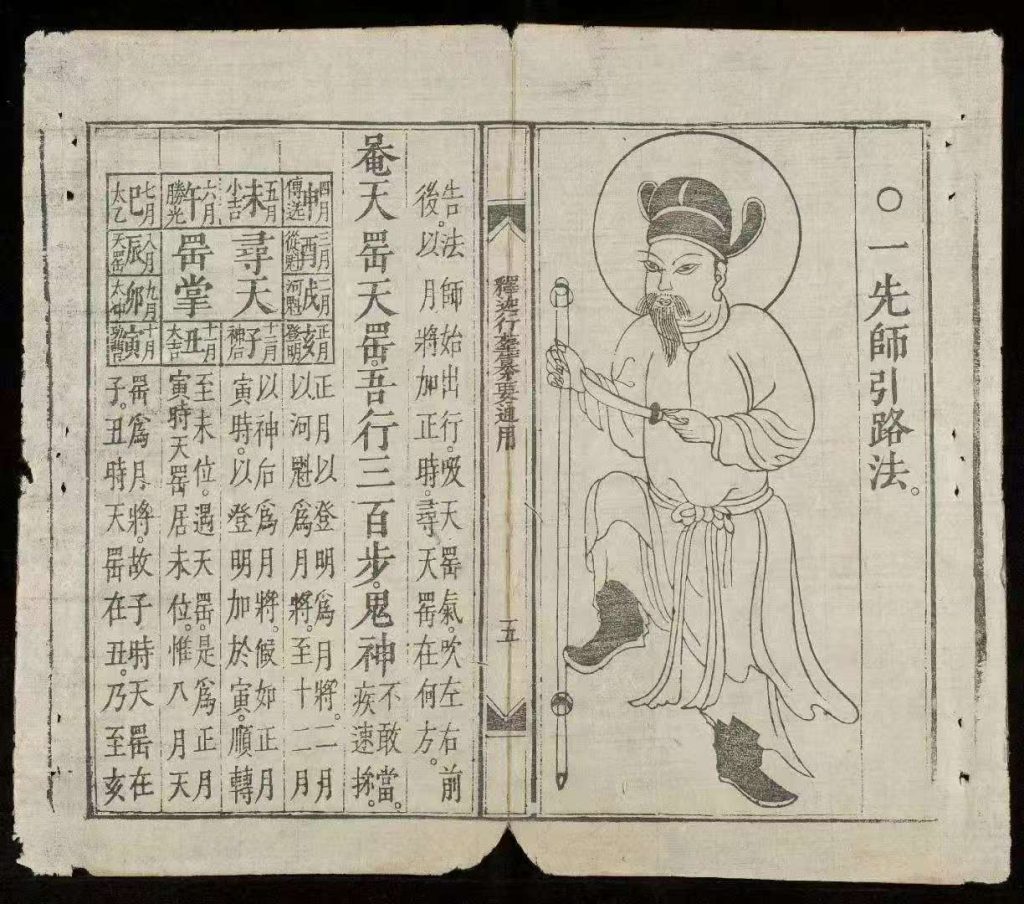 ○一先師引路法。
釋迦行纂要通用
五
告法師始出行。吸天罡氣。吹左右前
後。以月將加正時。尋天罡在何方。
天罡天罡。吾行三百步。鬼神不敢當。
疾速
四月申傳送
三月酉從魁
二月戌河魁
正月亥登明
五月未小吉
尋天
十二月子神后
六月午勝光
罡掌
十一月丑大吉
七月巳太乙
八月辰天罡
九月卯太冲
十月寅功曹
正月以登明爲月將。二月
以河魁爲月將。至十二月
以神后爲月將。假如正月
寅時。以登明加於寅。順轉
至未位。遇天罡。是爲正月
寅時天罡居未位。惟八月天
罡爲月將。故子時天罡在
子。丑時天罡在丑。乃至亥